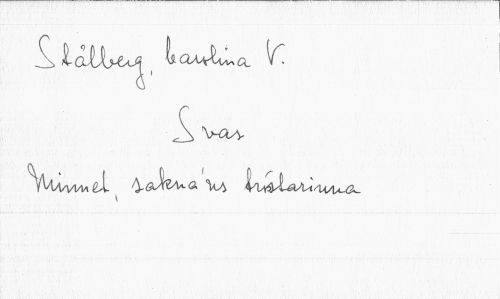 Stålberg, Karolina V.
Svar
Minnet, sakna'ns tröstarinna